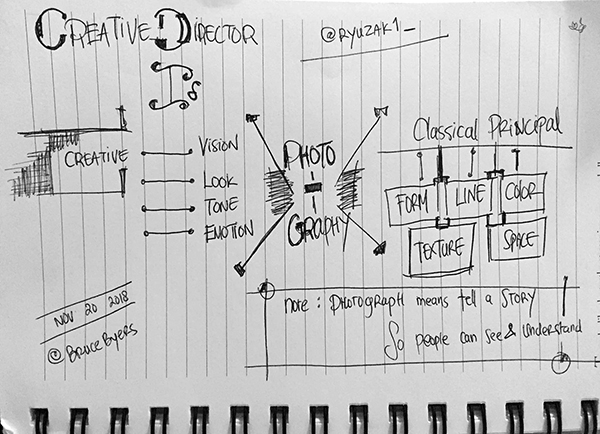 CREATIVE DIRECTOR
@RYUZAK1_
Is
CREATIVE
VISION
LOOK
TONE
EMOTION
PHOTO
-
GRAPHY
Classical PRINCIPAL
FORM
LINE
COLOR
TEXTURE
SPACE
NOV 20 2018
@BRUCEBYERS
note : PHOTOGRAPH means tell a STORY
So people can see & understand